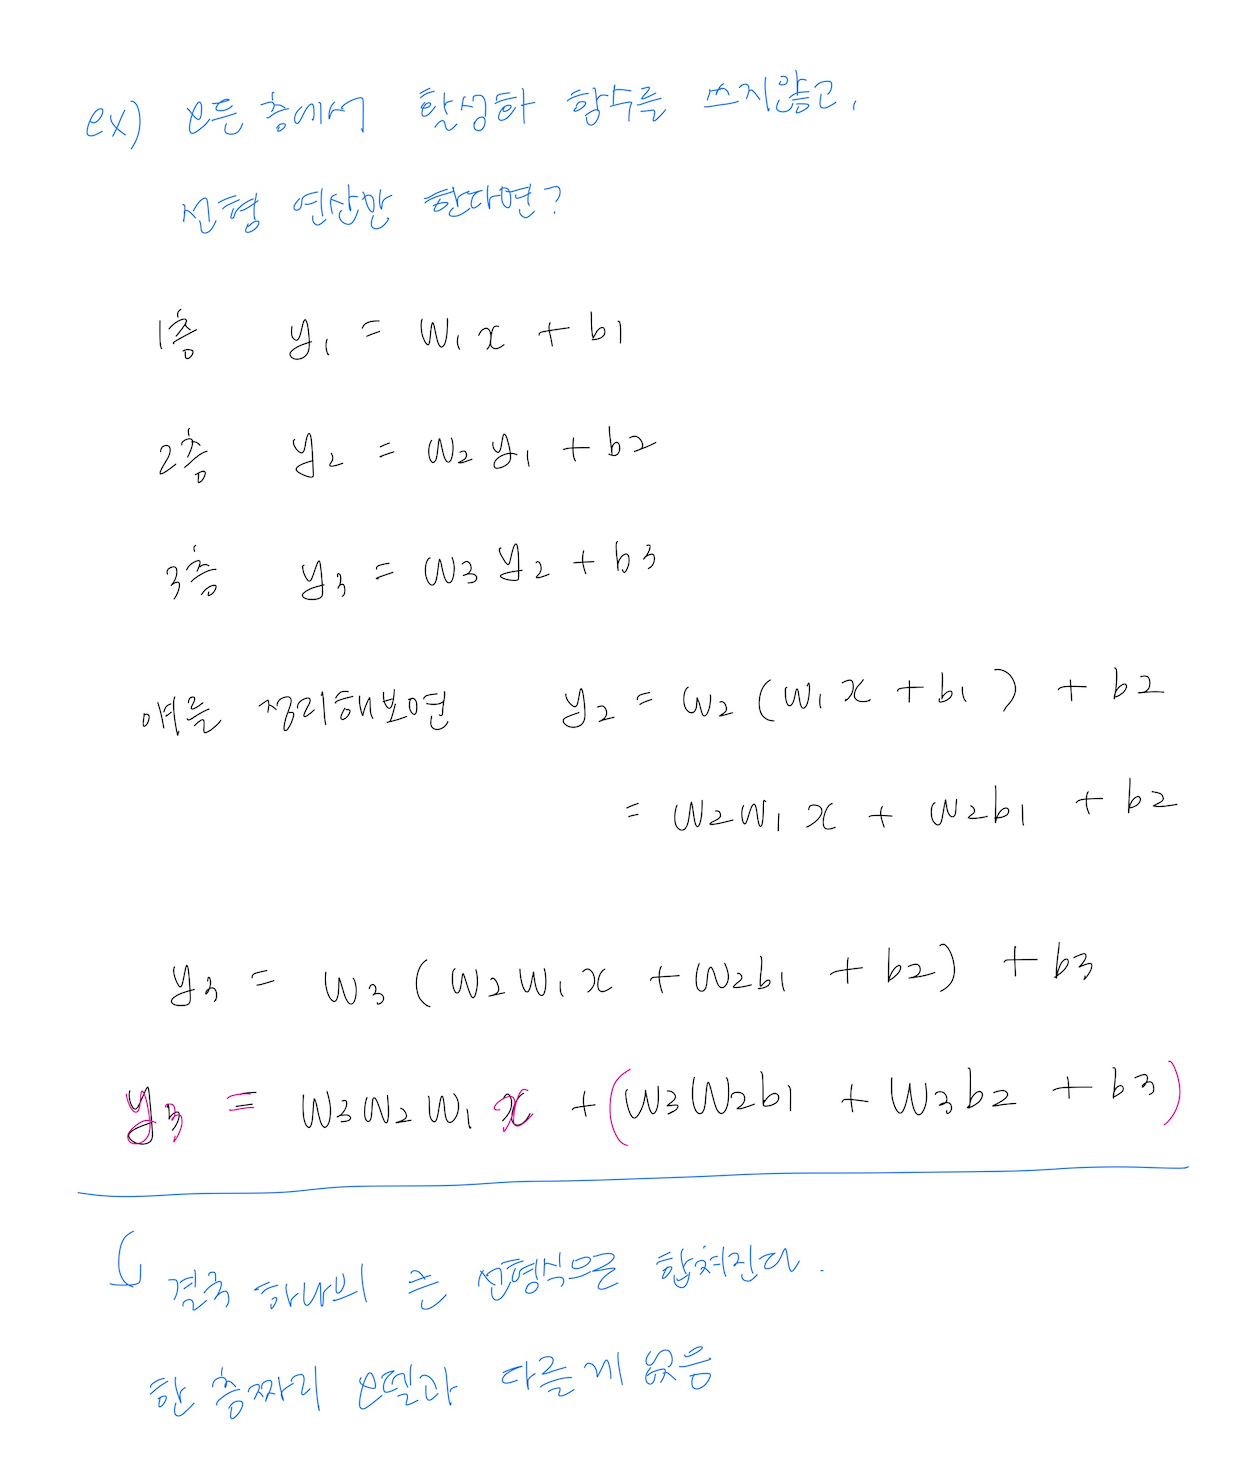 ex) 모든 층에서 활성화 함수를 쓰지않고,
선형 연산만 한다면?
1층 y₁ = w₁x + b1
2층 y₂ = w₂y₁ + b2
3층 y₃ = w₃y₂ + b3
얘를 정리해보면 y₂ = w₂(w₁x + b₁) + b2
= w₂w₁x + w₂b₁ + b2
y₃ = w₃(w₂w₁x + w₂b₁ + b2) + b3
y₃ = w₃w₂w₁x + (w₃w₂b1 + w₃b2 + b3)
결국 하나의 큰 선형식으로 합쳐진다.
한 층짜리 모델과 다를게 없음